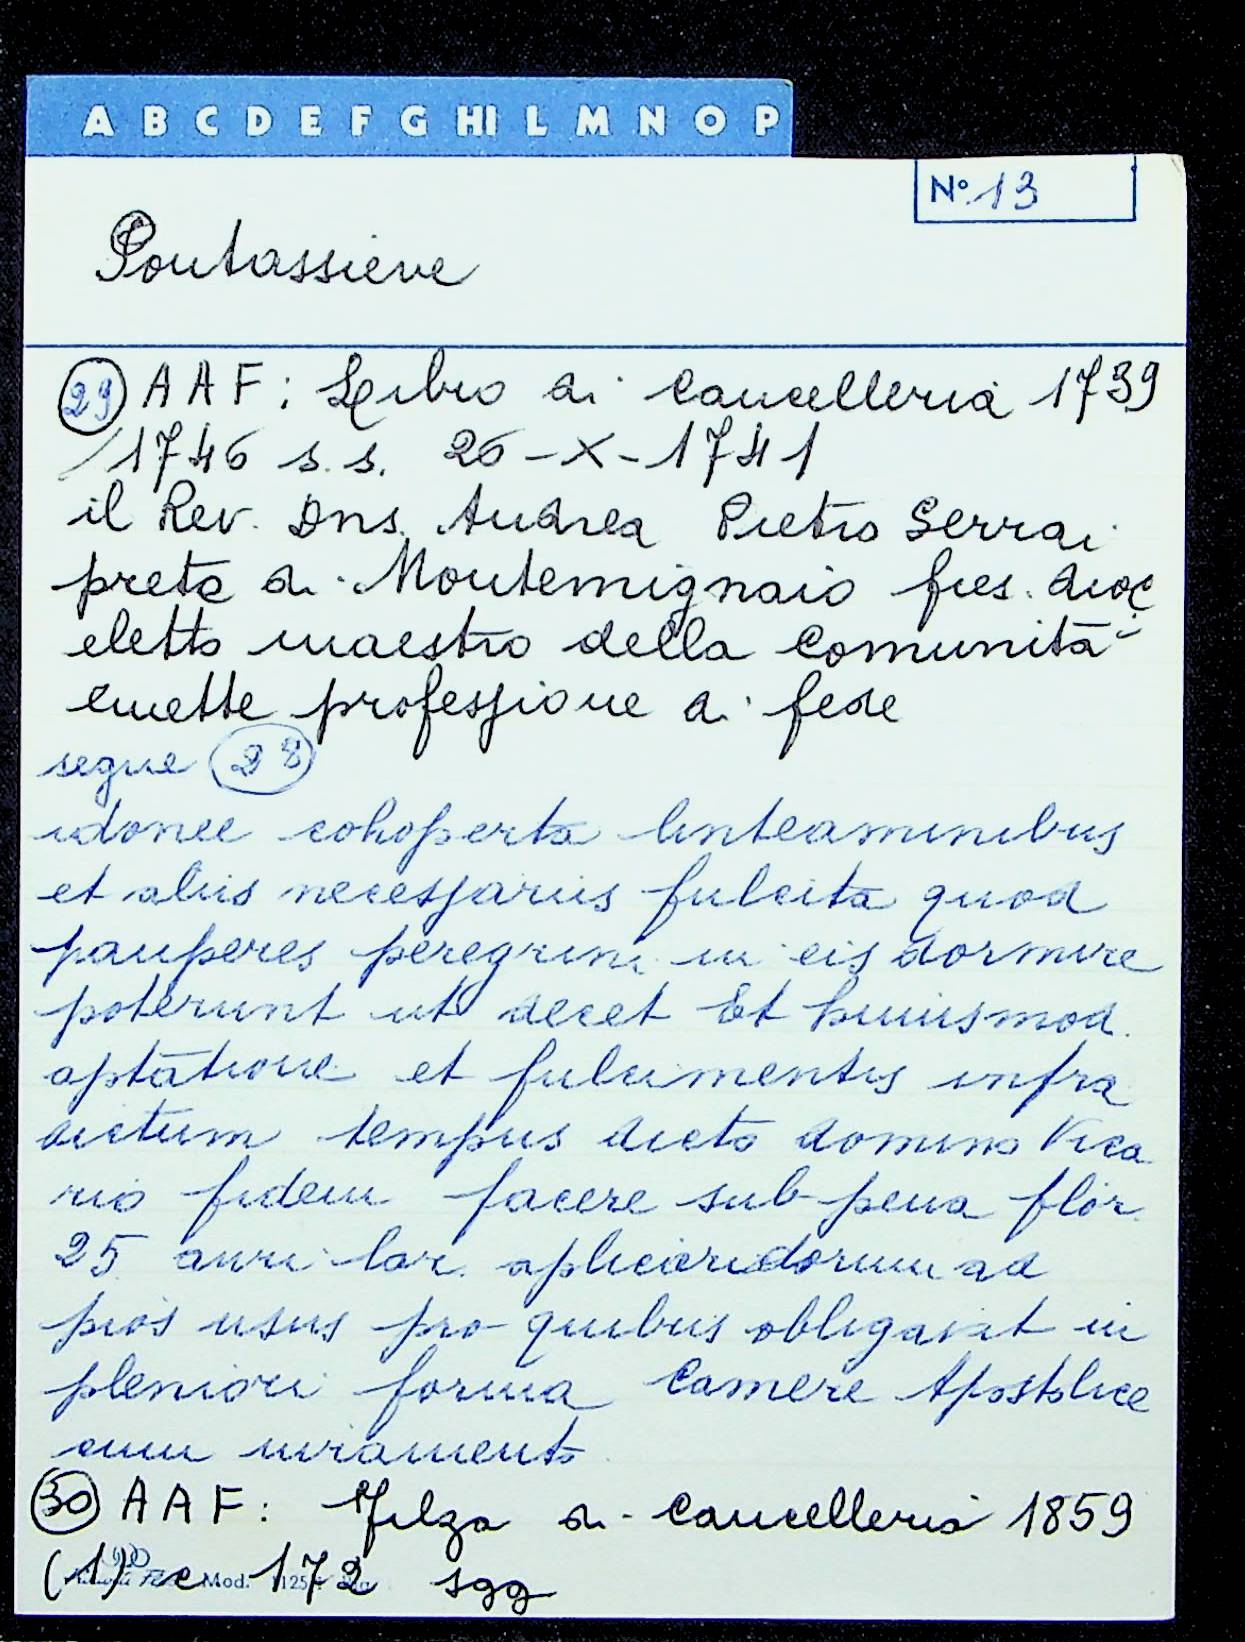 A B C D E F G HI L M N O P
N° 13
Pontassieve
29 AAF: Libro di Cancelleria 1739
/1746 s.s. 26-X-1741
il Rev. Dns. Andrea Pietro Serrai
prete di Montemignaio fies. dioc
eletto maestro della Comunità
emette professione di fede
segue 28
idonee cohoperta linteaminibus
et aliis necessariis fulcita quod
pauperes peregrini in eis dormire
poterunt ut decet Et huiusmod.
aptatione et fulcimentis infra
dictum tempus dicto domino Vica
rio fidem facere sub pena flor.
25 auri lar. aplicandorum ad
pios usus pro quibus obligavit in
pleniori forma Camere Apostolice
cum iuramento
30 AAF: Filza di Cancelleria 1859
(1) c 172 sgg
Mod.